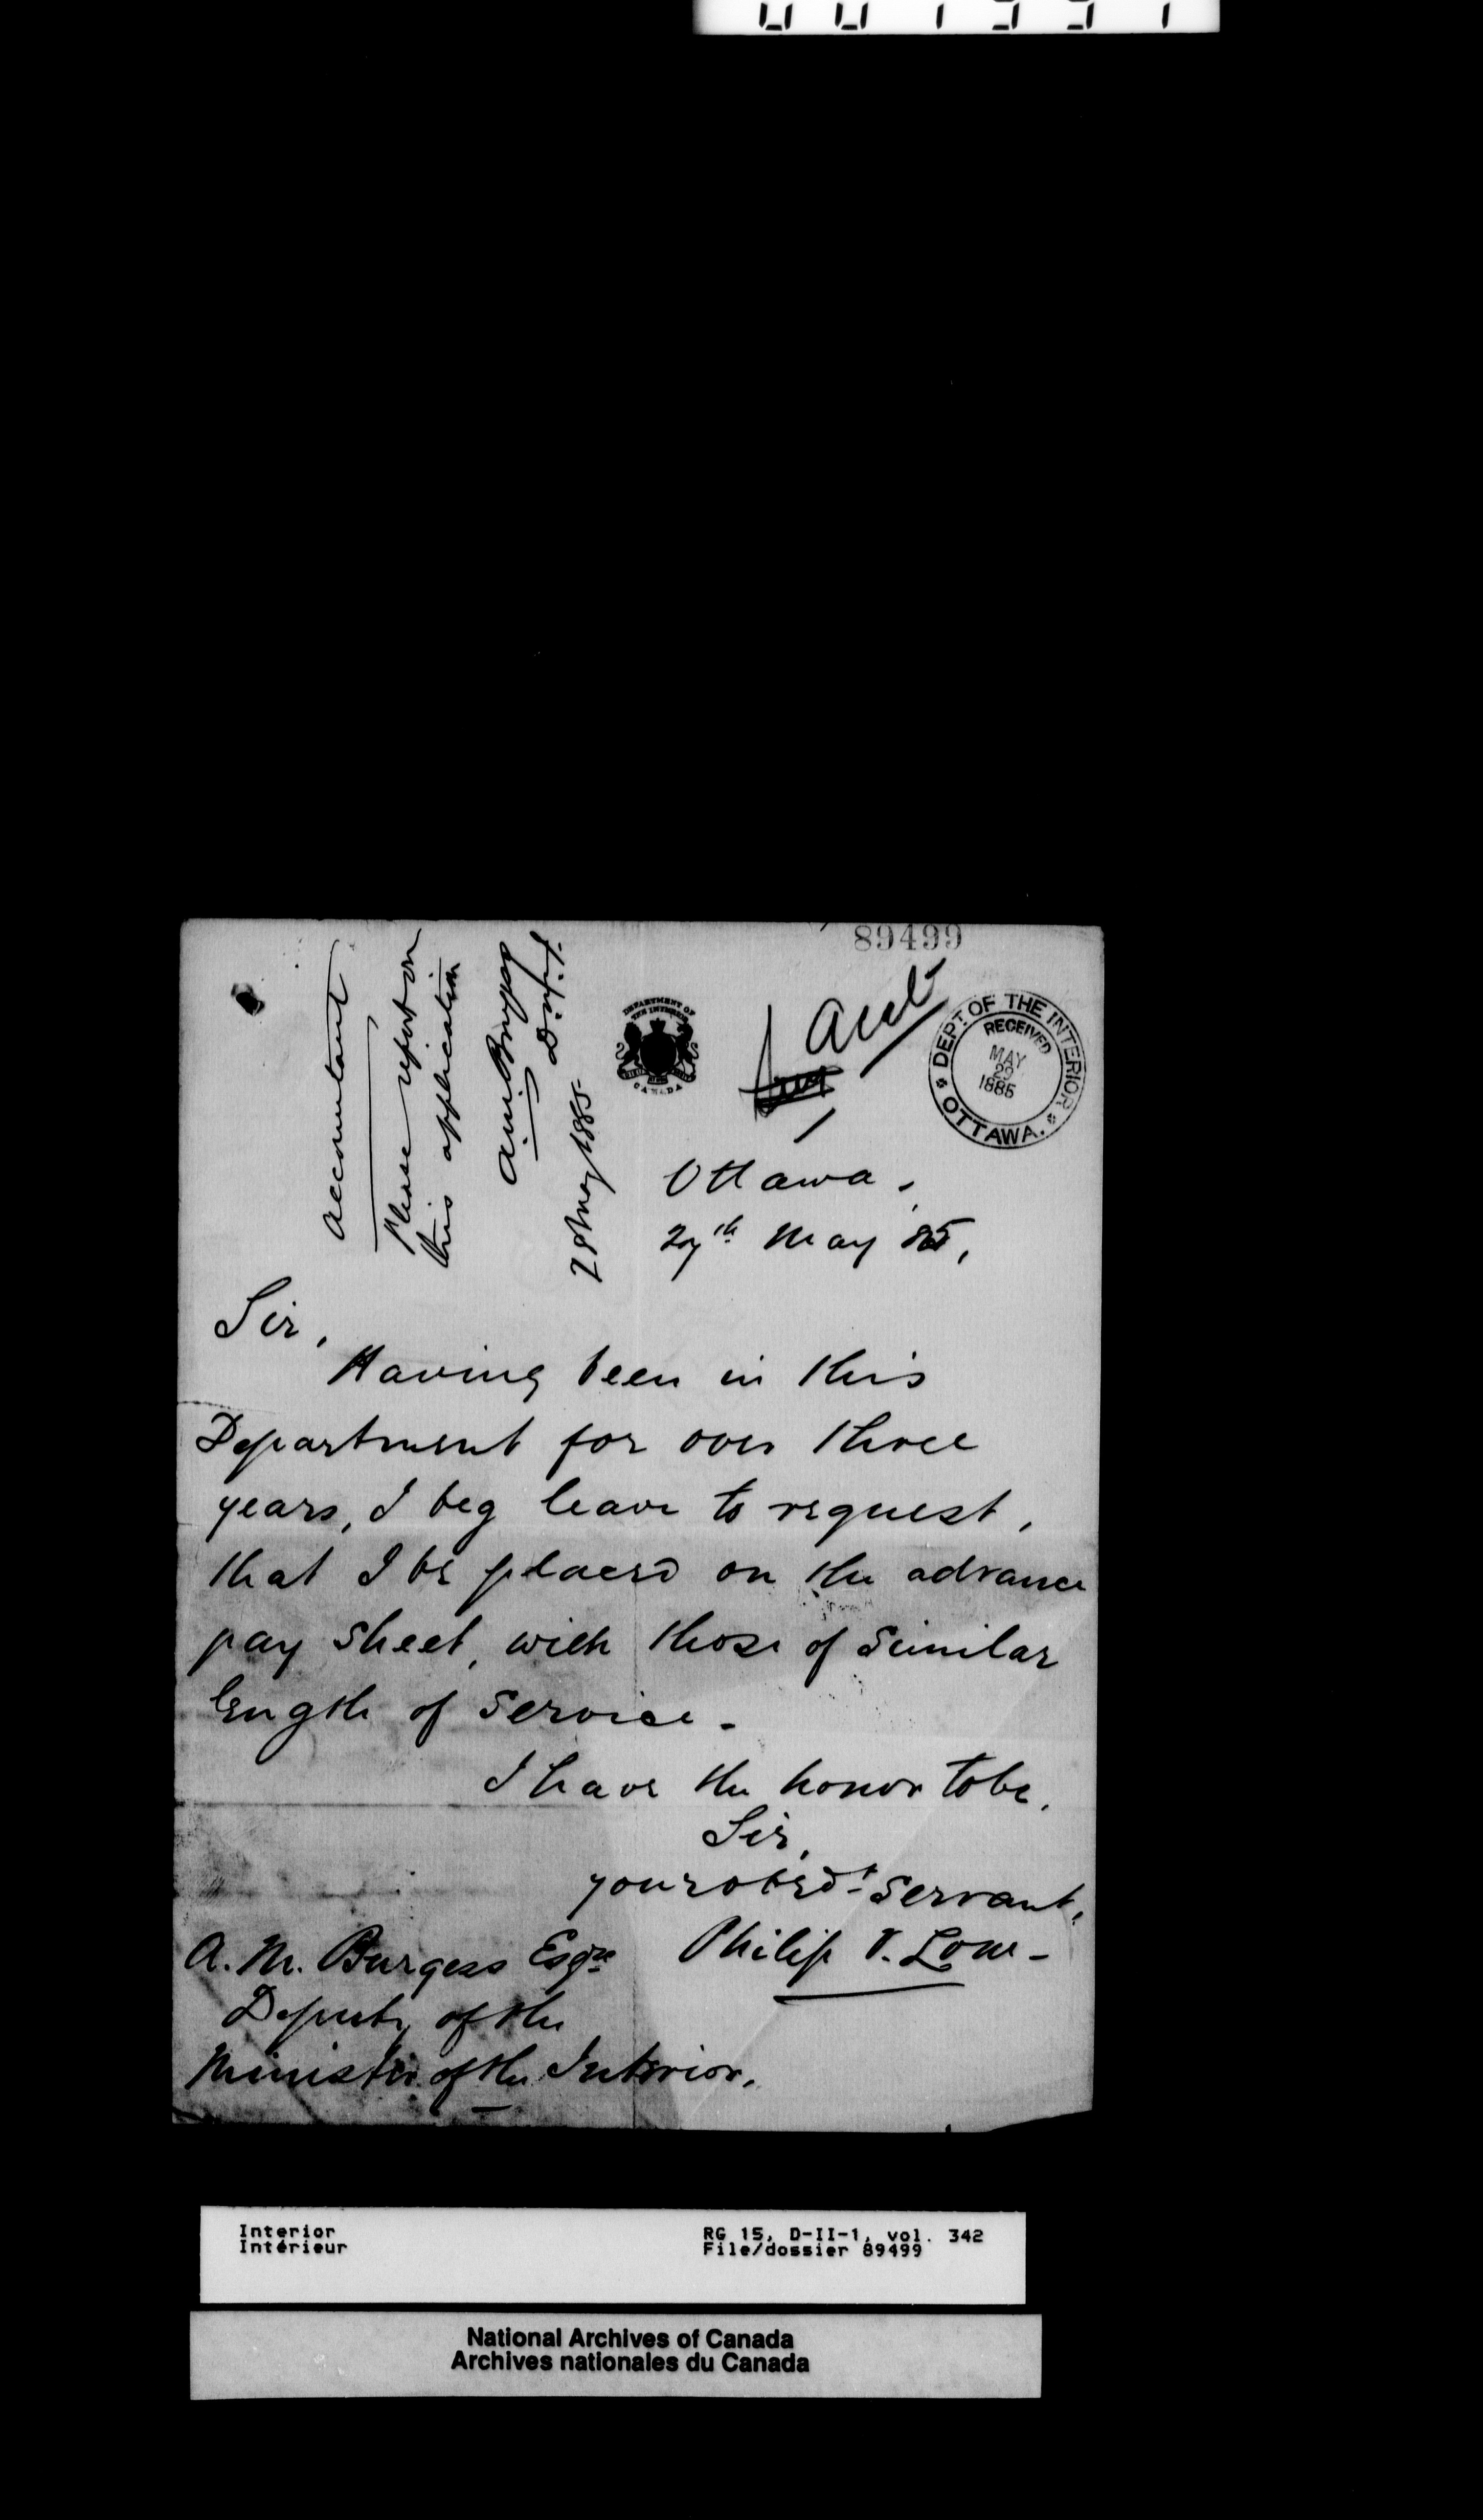 89499
Acct
DEPT OF THE INTERIOR
RECEIVED
MAY
29
1885
OTTAWA.
DEPARTMENT OF
THE INTERIOR
CANADA
Accountant
Please report on
this application
A M Burgess
D. M. I.
28 May 1885
Ottawa,
27th May 85,
Sir,
Having been in this
Department for over three
years, I beg leave to request,
that I be placed on the advance
pay sheet, with those of similar
length of service.
I have the honor to be,
Sir,
your obedt servant,
Philip V. Low
A. M. Burgess Esqre
Deputy of the
Minister of the Interior.
Interior
Intérieur
RG 15, D-II-1, vol. 342
File/dossier 89499
National Archives of Canada
Archives nationales du Canada